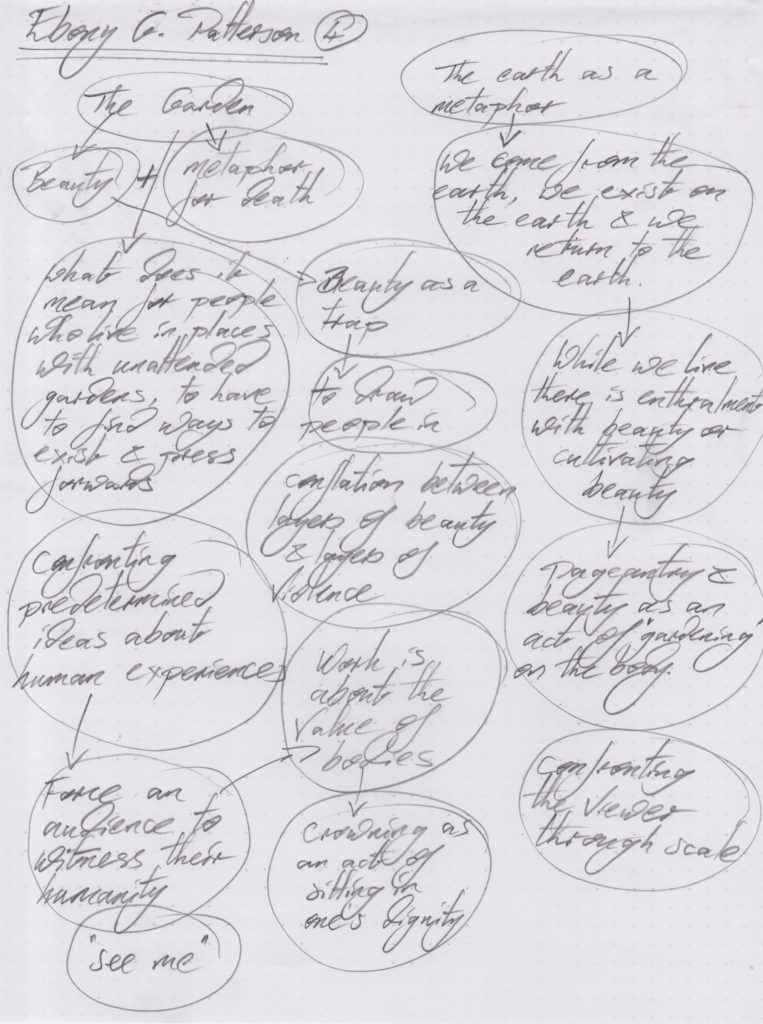 Ebony G. Patterson 4
The Garden
Beauty + metaphor
for death
What does it
mean for people
who live in places
with unattended
gardens, to have
to find ways to
exist & press
forwards
Beauty as a
trap
to draw
people in
conflation between
layers of beauty
& layers of
violence
Confronting
predetermined
ideas about
human experiences
Force an
audience to
witness their
humanity
"see me"
Work is
about the
value of
bodies
Crowning as
an act of
sitting in
one's dignity
The earth as a
metaphor
We come from the
earth, we exist on
the earth & we
return to the
earth.
While we live
there is enthralment
with beauty or
cultivating
beauty
Pageantry &
beauty as an
act of "gardening"
on the body.
Confronting
the viewer
through scale